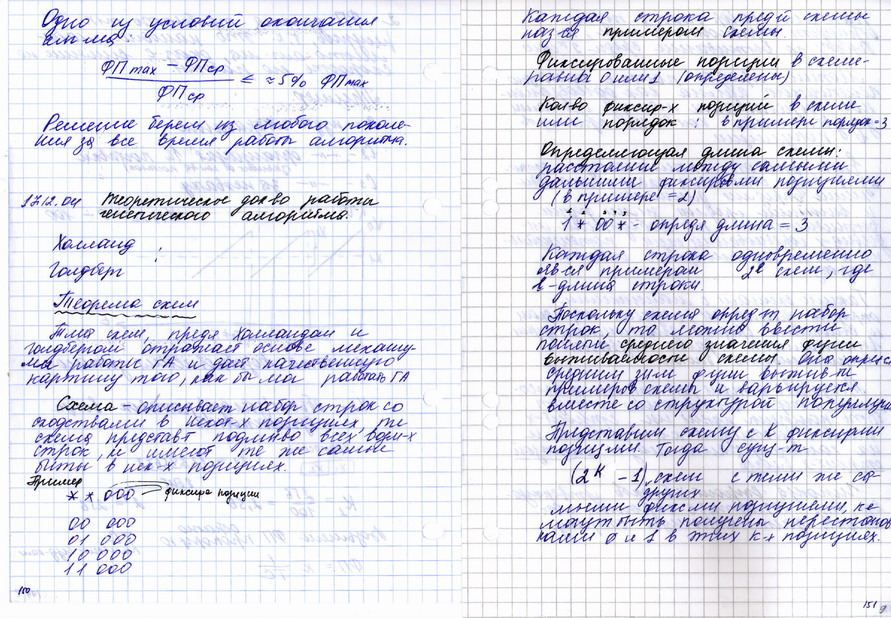 Одно из условий окончания
алг-ма:
ФПmax − ФПср
ФПср
≤ ≈5% ФПmax
Решение берем из любого поколе-
ния за все время работы алгоритма.
17.12.04 Теоретическое док-во работы
генетического алгоритма.
Холланд
:
Голдберг
Теорема схем
Т-ма схем, предл Холландом и
Голдбергом отражает основе механиз-
ма работы ГА и дает качественную
картину того, как бы мог работать ГА
Схема – описывает набор строк со
сходствами в некот-х позициях, т.е.
схема представл подмн-во всех возм-х
строк, и имеют те же самые
биты в нек-х позициях.
Пример
* * 000 фиксир позиции
00 000
01 000
10 000
11 000
150
Каждая строка пред-й схемы
наз-ся примером схемы.
Фиксированные позиции в схеме -
равны 0 или 1 (определены)
Кол-во фиксир-х позиций в схеме
или порядок : в примере порядок = 3
Определяющая длина схемы:
расстояние между самыми
дальними фиксиров-ми позициями
(в примере = 2)
1 * 00 * - определ длина = 3
Каждая строка одновременно
яв-ся примером 2^l схем, где
l - длина строки.
Поскольку схема определ набор
строк, то можно ввести
понятие среднего значения ф-ции
выживаемости схемы. Она опред-ся
средним знач ф-ции выжив-ти
примеров схемы и варьируется
вместе со структурой популяции
Представим схему с K фиксир-ми
позиции. Тогда сущ-т
(2^K − 1) схем с теми же са-
других
мыми фиксир-ми позициями, к-е
могут быть получены перестанов-
ками 0 и 1 в этих K-х позициях.
151